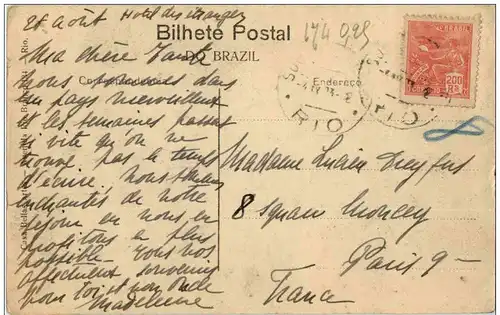 26 Août Hotel des étrangers
174 0,25
Bilhete Postal
DO BRAZIL
BRAZIL
200
Rs
Endereço
RIO
RIO
Ma chère Tante
Nous sommes dans
un pays merveilleux
et les semaines passent
si vite qu'on ne
trouve pas le temps
d'écrire. Nous sommes
enchantés de notre
séjour et nous en
profitons le plus
possible. Tous nos
affectueux souvenirs
pour toi et mon oncle
Madeleine
Madame Lucien Dreyfus
8 Square Moncey
Paris 9e
France